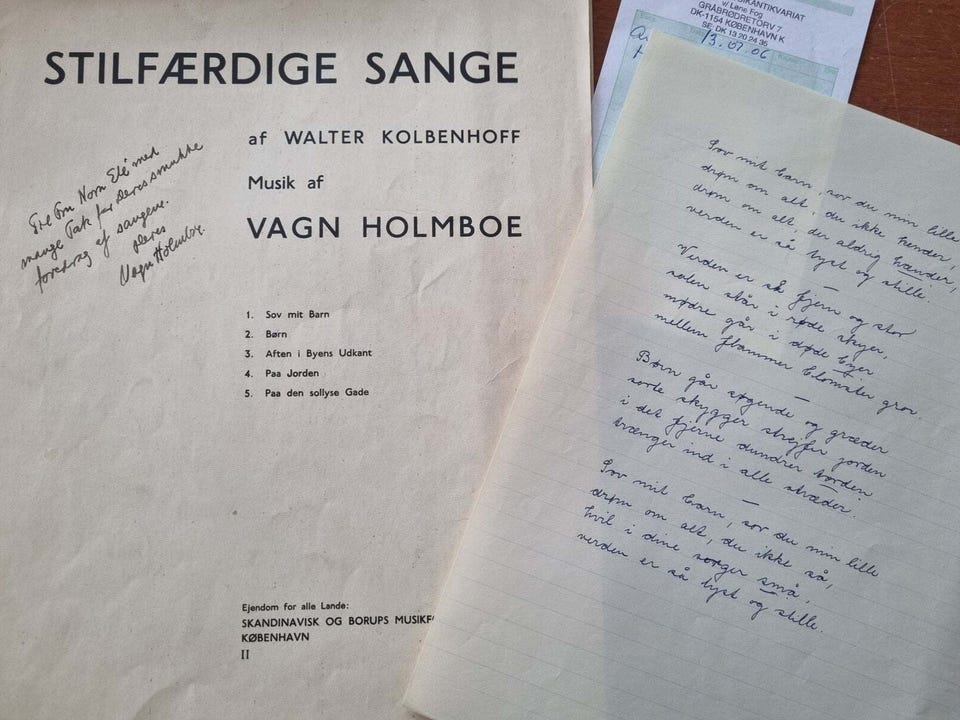 STILFÆRDIGE SANGE
af WALTER KOLBENHOFF
Musik af
VAGN HOLMBOE
Til Fru Norn Elé med
mange Tak for Deres smukke
foredrag af sangene.
Deres
Vagn Holmboe.
1. Sov mit Barn
2. Børn
3. Aften i Byens Udkant
4. Paa Jorden
5. Paa den sollyse Gade
Ejendom for alle Lande:
SKANDINAVISK OG BORUPS MUSIKF
KØBENHAVN
II
IKANTIKVARIAT
v/ Lene Fog
GRÅBRØDRETORV 7
DK-1154 KØBENHAVN K
SE DK 13 20 24 35
13.07.06
Sov mit barn, sov du min lille
drøm om alt, du ikke kender,
drøm om alt, der aldrig hænder,
verden er så tyst og stille.
Verden er så fjern og stor
solen står i røde skyer,
mødre går i døde byer
mellem flammer blomster gror.
Børn går søgende og græder
sorte skygger strejfer jorden
i det fjerne dundrer torden
trænger ind i alle stræder.
Sov mit barn, sov du min lille
drøm om alt, du ikke så,
hvil i dine sorger små,
verden er så tyst og stille.